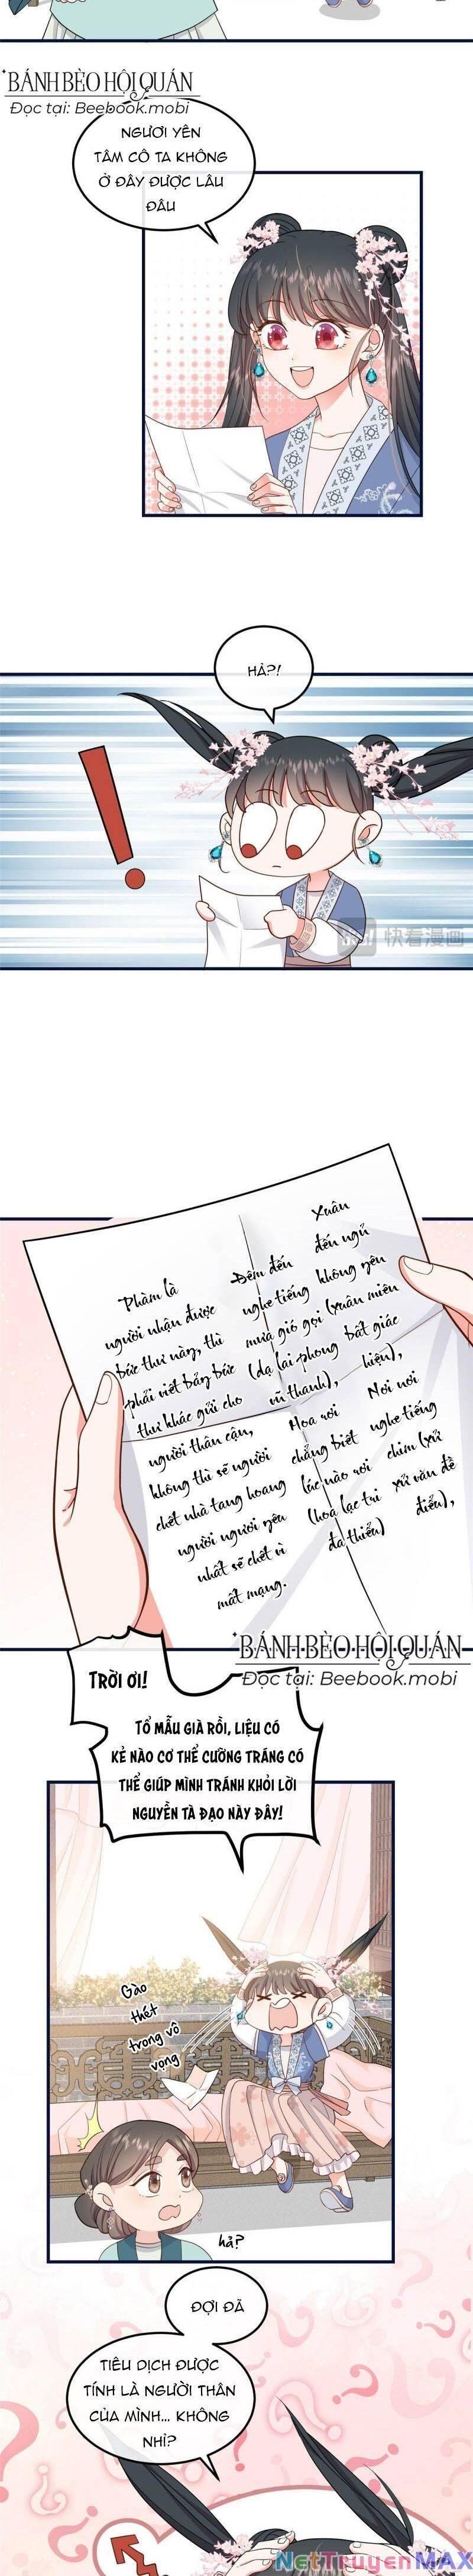 BÁNH BÈO HỘI QUÁN
Đọc tại: Beebook.mobi
NGƯƠI YÊN
TÂM CÔ TA KHÔNG
Ở ĐÂY ĐƯỢC LÂU
ĐÂU
HẢ?!
快看漫画
Phàm là
người nhận được
bức thư này, thì
phải viết bảy bức
thư khác gửi cho
người thân cận,
không thì sẽ người
chết nhà tang hoang
người ngươi yêu
nhất sẽ chết vì
mất mạng.
Xuân
đến ngủ
không yên
(xuân miên
bất giác
hiện),
Nơi nơi
nghe tiếng
chim (xử
xử văn đề
điểu),
Đêm đến
nghe tiếng
mưa gió gọi
(dạ lai phong
vũ thanh),
Hoa rơi
chẳng biết
lúc nào rơi
(hoa lạc tri
đa thiểu)
BÁNH BÈO HỘI QUÁN
Đọc tại: Beebook.mobi
TRỜI ƠI!
TỔ MẪU GIÀ RỒI, LIỆU CÓ
KẺ NÀO CƠ THỂ CƯỜNG TRÁNG CÓ
THỂ GIÚP MÌNH TRÁNH KHỎI LỜI
NGUYỀN TÀ ĐẠO NÀY ĐÂY!
Gào
thét
trong vô
vọng
hả?
ĐỢI ĐÃ
TIÊU DỊCH ĐƯỢC
TÍNH LÀ NGƯỜI THÂN
CỦA MÌNH... KHÔNG
NHỈ?
NetTruyenMAX